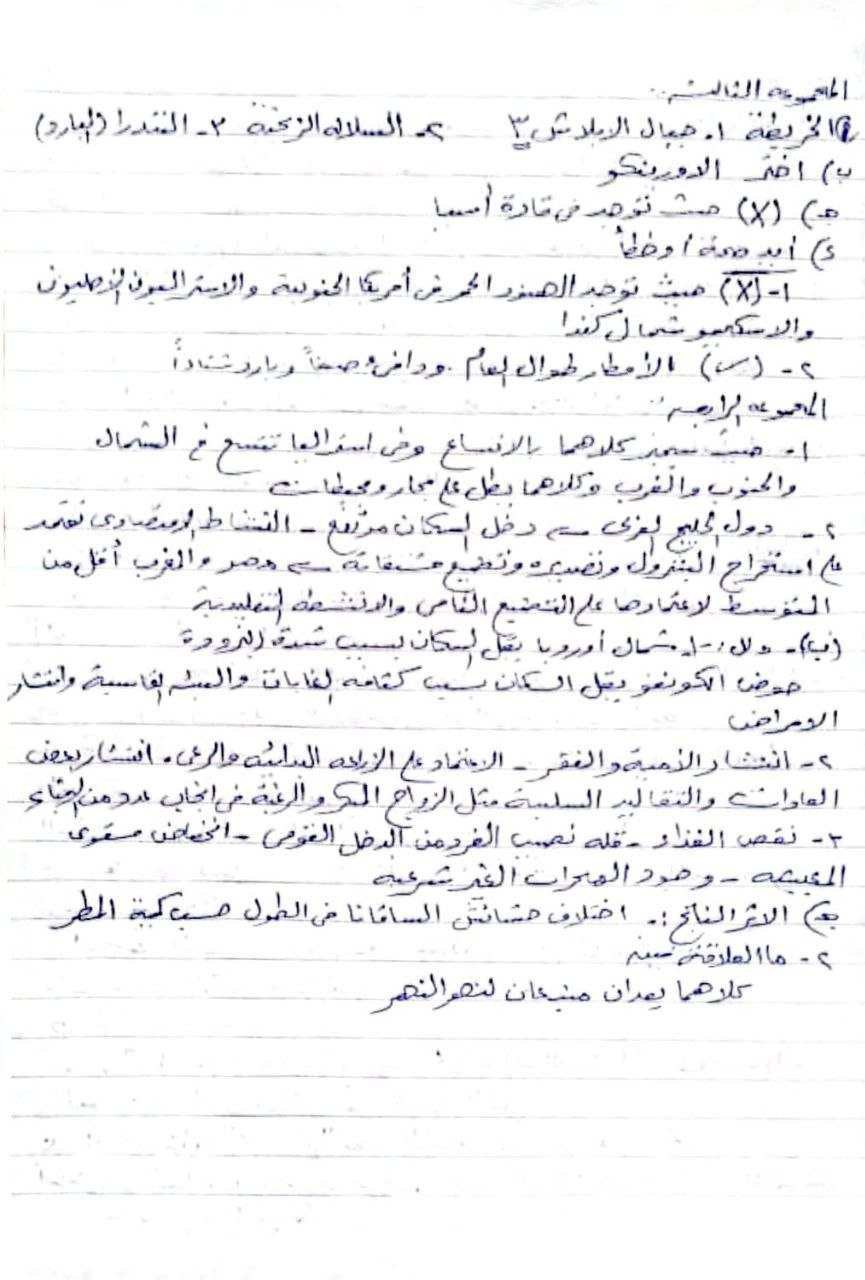 المجموعه الثالثه :
أ) الخريطة ١- جبال الابلاش ٢- السلاله الزنجية ٣- التندرا (البارد)
ب) اختر الاورينكو
جـ) (X) حيث توجد فى قارة أسيا
د) أيد صحة أو خطأ
١- (X) حيث توجد الهنود الحمر فى أمريكا الجنوبية والاستراليون الاصليون
والاسكيمو شمال كندا
٢- (س) الأمطار طوال العام ودافئ صيفاً وبارد شتاءاً
المجموعه الرابعه :
١- حيث يتميز كلاهما بالاتساع وفى استراليا تتسع فى الشمال
والجنوب والغرب وكلاهما يطل على بحار ومحيطات
٢- دول الخليج العربى ← دخل السكان مرتفع - النشاط الاقتصادى تعتمد
على استخراج البترول وتصديره وتصنيع مشتقاته ← مصر والمغرب أقل من
المتوسط لاعتمادها على التصنيع الخامى والانشطه التقليدية
(ب)- دلل :- ١- شمال أوروبا يقل السكان بسبب شدة البرودة
حوض الكونغو يقل السكان بسبب كثافه الغابات والبيئه القاسية وانتشار
الامراض
٢- انتشار الأمية والفقر - الاعتماد على الزراعه البدائيه والرعى. انتشار بعض
العادات والتقاليد السلبية مثل الزواج المبكر والرغبة فى انجاب عدد من الابناء
٣- نقص الغذاء - قله نصيب الفرد من الدخل القومى - انخفاض مستوى
المعيشه - وجود الهجرات الغير شرعيه
جـ) الاثر الناتج :. اختلاف حشائش السافانا فى الطول حسب كمية المطر
٢- ما العلاقة بينه
كلاهما يعدان منبعان لنهر النهر